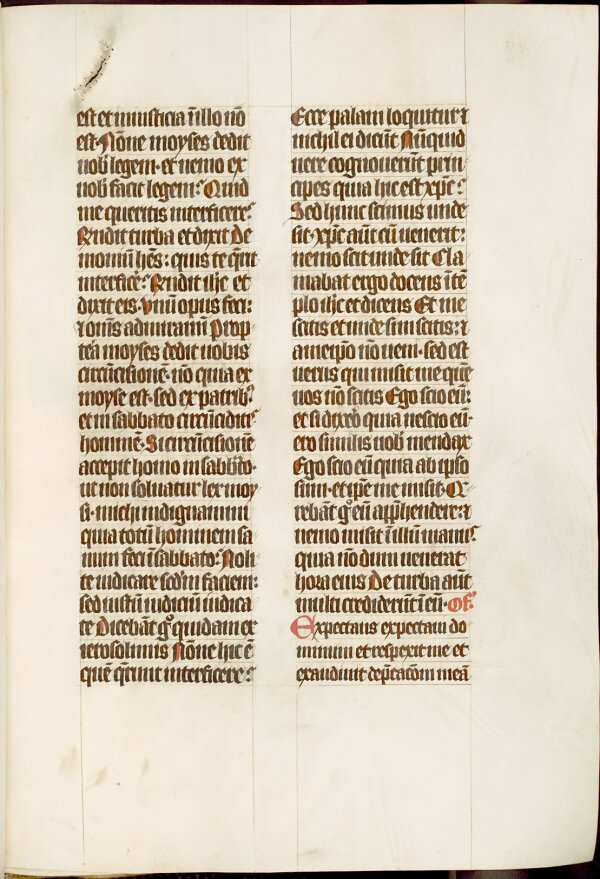 est et iniusticia ĩ illo nõ
est. Nõne moyses dedit
uob̾ legem. et nemo ex
uob̾ facit legem? Quid
me queritis interficere?
Rñdit turba et dixit De
moniũ hẽs: quis te q̃rit
interfic̾e? Rñdit ihc et
dixit eis. Vnũ opus feci:
⁊ om̃s admiramĩ Prop-
tẽa moyses dedit uobis
circũcisionẽ. nõ quia ex
moyse est. sed ex patrib?
et in sabbato circũcidit?
hominẽ. Si circũcisionẽ
accepit homo in sabb̾to.
ut non soluatur lex moy
si. michi indignamini
quia totũ hominem sa-
num feci ĩ sabbato? Noli
te iudicare scd̾m faciem:
sed iustũ iudiciũ iudica
te Dicebãt g̊ quidam ex
ierosolimis Nõne hic ẽ
quẽ q̃runt interficere?
Ecce palam loquitur ⁊
nichil ei dicũt Nũquid
uere cognouerũt prin-
cipes quia hic est xp̃c?
Sed hunc scimus unde
sit. xp̃c aũt cũ uenerit:
nemo scit unde sit Cla
mabat ergo docens ĩ tẽ
plo ihc et dicens Et me
scitis et unde sim scitis: ⁊
a meip̃o nõ ueni. sed est
uerus qui misit me quẽ
uos nõ scitis Ego scio eũ:
et si dixero quia nescio eũ.
ero similis uob̾ mendax
Ego scio eũ quia ab ipso
sum. et ip̃e me misit. Q̃
rebãt g̊ eũ app̃hendere: ⁊
nemo misit ĩ illũ manu?
quia nõ dum uenerat
hora eius De turba aũt
multi crediderũt ĩ eũ. Of̃.
Expectans expectaui do
minum et respexit me et
exaudiuit dep̃catõm meã